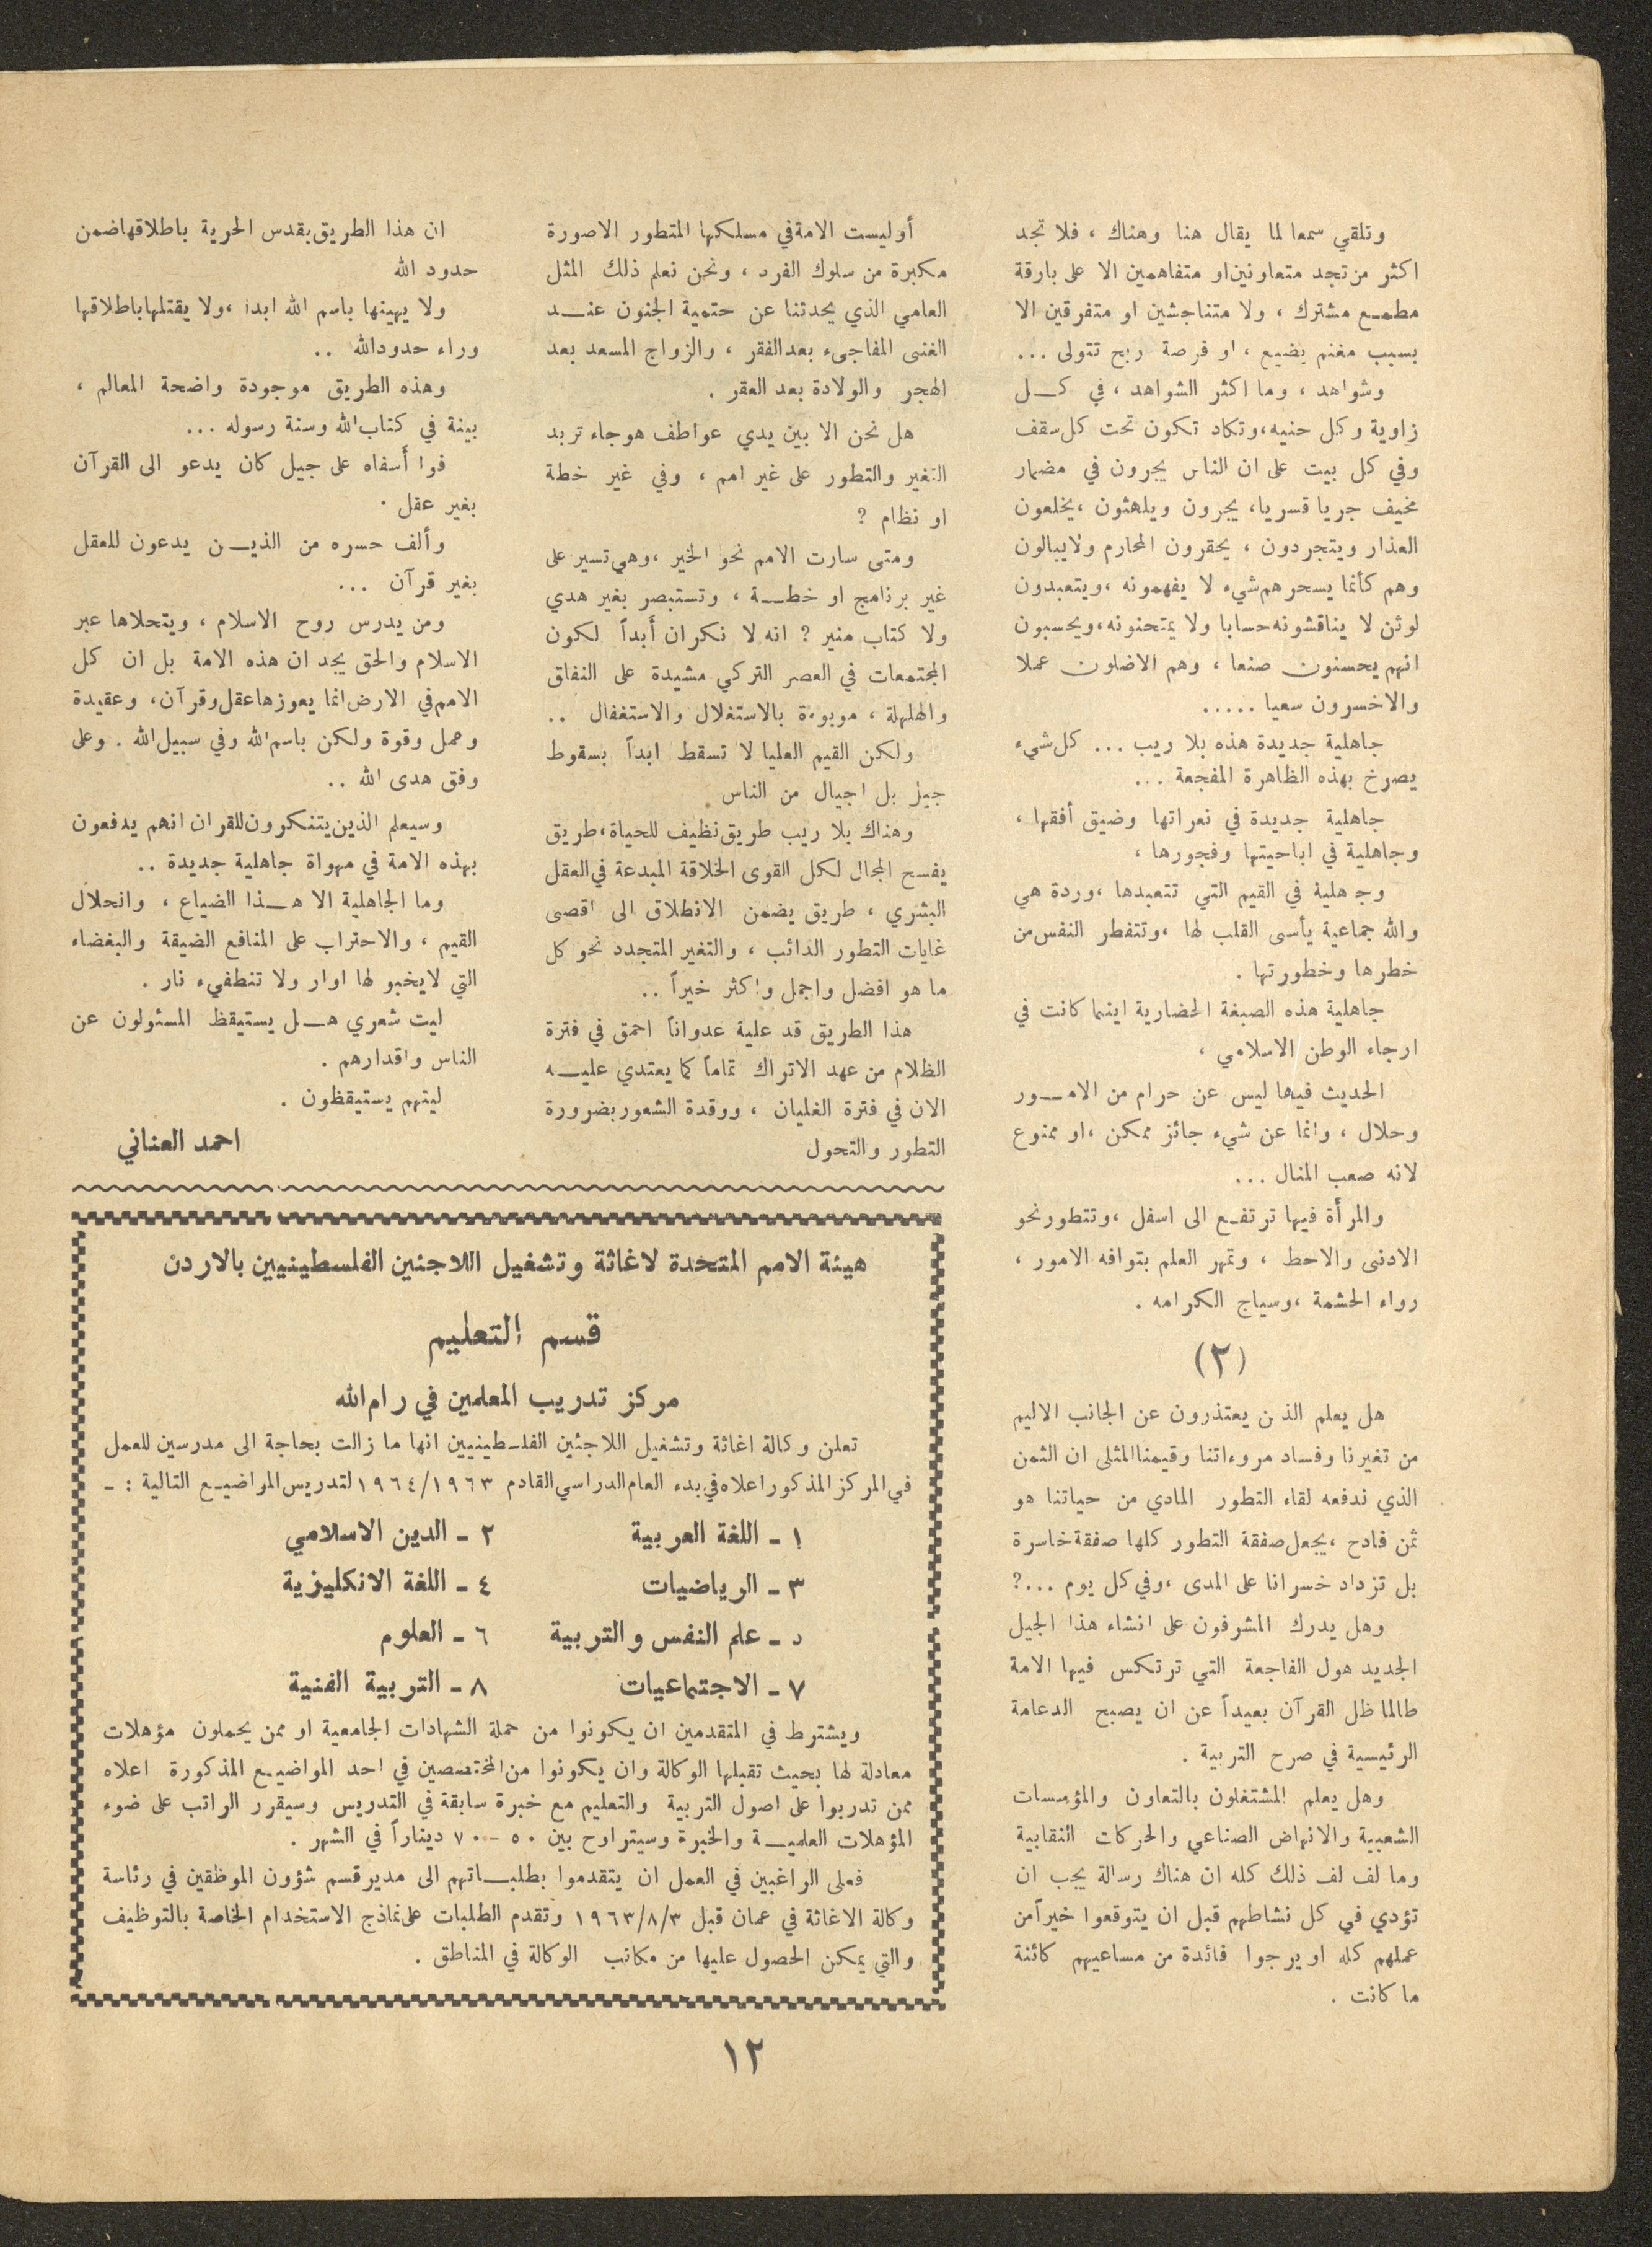 وتلقي سمعا لما يقال هنا وهناك ، فلا تجد
اكثر من تجد متعاونين او متفاهمين الا على بارقة
مطمع مشترك ، ولا متناجشين او متفرقين الا
بسبب مغنم يضيع ، او فرصة ربح تتولى ...
وشواهد ، وما اكثر الشواهد ، في كل
زاوية وكل حنيه ، وتكاد تكون تحت كل سقف
وفي كل بيت على ان الناس يجرون في مضمار
مخيف جريا قسريا ، يجرون ويلهثون ، يخلعون
العذار ويتجردون ، يحقرون المحارم ولا يبالون
وهم كأنما يسحرهم شيء لا يفهمونه ، ويتعبدون
لوثن لا يناقشونه حسابا ولا يمتحنونه ، ويحسبون
انهم يحسنون صنعا ، وهم الاضلون عملا
والاخسرون سعيا .....
جاهلية جديدة هذه بلا ريب ... كل شيء
يصرخ بهذه الظاهرة المفجعة ...
جاهلية جديدة في نعراتها وضيق أفقها ،
وجاهلية في اباحيتها وفجورها ،
وجـ هلية في القيم التي تتعبدها ، وردة هي
والله جماعية يأسى القلب لها ، وتتفطر النفس من
خطرها وخطورتها .
جاهلية هذه الصبغة الحضارية اينما كانت في
ارجاء الوطن الاسلامي ،
الحديث فيها ليس عن حرام من الامور
وحلال ، وانما عن شيء جائز ممكن ، او ممنوع
لانه صعب المنال ...
والمرأة فيها ترتفع الى اسفل ، وتتطور نحو
الادنى والاحط ، وتمهر العلم بتوافه الامور ،
رواء الحشمة ، وسياج الكرامه .
(٢)
هل يعلم الذ ن يعتذرون عن الجانب الاليم
من تغيرنا وفساد مروءاتنا وقيمنا المثلى ان الثمن
الذي ندفعه لقاء التطور المادي من حياتنا هو
ثمن فادح ، يجعل صفقة التطور كلها صفقة خاسرة
بل تزداد خسرانا على المدى ، وفي كل يوم ...?
وهل يدرك المشرفون على انشاء هذا الجيل
الجديد هول الفاجعة التي ترتكس فيها الامة
طالما ظل القرآن بعيداً عن ان يصبح الدعامة
الرئيسية في صرح التربية .
وهل يعلم المشتغلون بالتعاون والمؤسسات
الشعبية والانهاض الصناعي والحركات النقابية
وما لف لف ذلك كله ان هناك رسالة يجب ان
تؤدي في كل نشاطهم قبل ان يتوقعوا خيراً من
عملهم كله او يرجوا فائدة من مساعيهم كائنة
ما كانت .
أوليست الامة في مسلكها المتطور الا صورة
مكبرة من سلوك الفرد ، ونحن نعلم ذلك المثل
العامي الذي يحدثنا عن حتمية الجنون عند
الغنى المفاجىء بعد الفقر ، والزواج المسعد بعد
الهجر والولادة بعد العقر .
هل نحن الا بين يدي عواطف هوجاء تريد
التغير والتطور على غير امم ، وفي غير خطة
او نظام ?
ومتى سارت الامم نحو الخير ، وهي تسير على
غير برنامج او خطة ، وتستبصر بغير هدي
ولا كتاب منير ? انه لا نكران أبداً لكون
المجتمعات في العصر التركي مشيدة على النفاق
والهلهلة ، موبوءة بالاستغلال والاستغفال ..
ولكن القيم العليا لا تسقط ابداً بسقوط
جيل بل اجيال من الناس .
وهناك بلا ريب طريق نظيف للحياة ، طريق
يفسح المجال لكل القوى الخلاقة المبدعة في العقل
البشري ، طريق يضمن الانطلاق الى اقصى
غايات التطور الدائب ، والتغير المتجدد نحو كل
ما هو افضل واجمل واكثر خيراً ..
هذا الطريق قد علية عدواناً احمق في فترة
الظلام من عهد الاتراك تماماً كما يعتدي عليه
الان في فترة الغليان ، ووقدة الشعور بضرورة
التطور والتحول
ان هذا الطريق بقدس الحرية باطلاقها ضمن
حدود الله
ولا يهينها باسم الله ابدا ، ولا يقتلها باطلاقها
وراء حدود الله ..
وهذه الطريق موجودة واضحة المعالم ،
بينة في كتاب الله وسنة رسوله ...
فوا أسفاه على جيل كان يدعو الى القرآن
بغير عقل .
وألف حسره من الذين يدعون للعقل
بغير قرآن ...
ومن يدرس روح الاسلام ، ويتحلاها عبر
الاسلام والحق يجد ان هذه الامة بل ان كل
الامم في الارض انما يعوزها عقل وقرآن ، وعقيدة
وعمل وقوة ولكن باسم الله وفي سبيل الله . وعلى
وفق هدى الله ..
وسيعلم الذين يتنكرون للقران انهم يدفعون
بهذه الامة في مهواة جاهلية جديدة ..
وما الجاهلية الا هذا الضياع ، وانحلال
القيم ، والاحتراب على المنافع الضيقة والبغضاء
التي لا يخبو لها اوار ولا تنطفيء نار .
ليت شعري هل يستيقظ المسئولون عن
الناس واقدارهم .
ليتهم يستيقظون .
احمد العناني
هيئة الامم المتحدة لاغاثة وتشغيل اللاجئين الفلسطينيين بالاردن
قسم التعليم
مركز تدريب المعلمين في رام الله
تعلن وكالة اغاثة وتشغيل اللاجئين الفلسطينيين انها ما زالت بحاجة الى مدرسين للعمل
في المركز المذكور اعلاه في بدء العام الدراسي القادم ١٩٦٤/١٩٦٣ لتدريس المواضيع التالية : -
١ - اللغة العربية ٢ - الدين الاسلامي
٣ - الرياضيات ٤ - اللغة الانكليزية
٥ - علم النفس والتربية ٦ - العلوم
٧ - الاجتماعيات ٨ - التربية الفنية
ويشترط في المتقدمين ان يكونوا من حملة الشهادات الجامعية او ممن يحملون مؤهلات
معادلة لها بحيث تقبلها الوكالة وان يكونوا من المختصصين في احد المواضيع المذكورة اعلاه
ممن تدربوا على اصول التربية والتعليم مع خبرة سابقة في التدريس وسيقرر الراتب على ضوء
المؤهلات العلمية والخبرة وسيتراوح بين ٥٠ - ٧٠ ديناراً في الشهر .
فعلى الراغبين في العمل ان يتقدموا بطلباتهم الى مدير قسم شؤون الموظفين في رئاسة
وكالة الاغاثة في عمان قبل ١٩٦٣/٨/٣ وتقدم الطلبات على نماذج الاستخدام الخاصة بالتوظيف
والتي يمكن الحصول عليها من مكاتب الوكالة في المناطق .
١٢